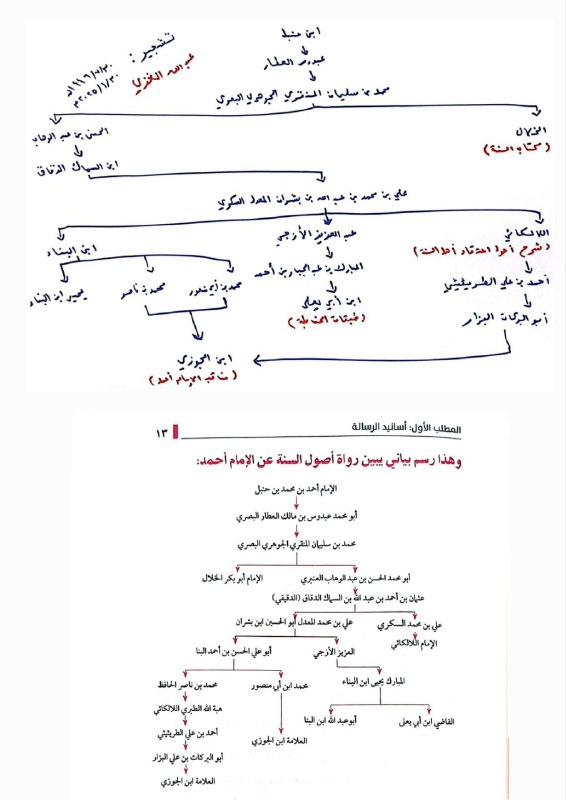 ابن حنبل
عبدوس العطار
محمد بن سليمان المنقري الجوهري البصري
تشجير :
عبد الله العنزي
٢٠٢٥/١/٣٠م
الخلال
(كتاب السنة)
الحسن بن عبد الوهاب
ابن السماك الدقاق
علي بن محمد بن عبد الله بن بشران المعدل السكري
اللالكائي
(شرح أصول اعتقاد أهل السنة)
عبد العزيز الأزجي
ابن البناء
أحمد بن علي الطريثيثي
المبارك بن عبد الجبار بن أحمد
محمد بن أبي منصور
محمد بن ناصر
يحيى ابن البناء
أبو البركات البزار
ابن أبي يعلى
(طبقات الحنابلة)
ابن الجوزي
(مناقب الإمام أحمد)
المطلب الأول: أسانيد الرسالة
١٣
وهذا رسم بياني يبين رواة أصول السنة عن الإمام أحمد:
الإمام أحمد بن محمد بن حنبل
أبو محمد عبدوس بن مالك العطار البصري
محمد بن سليمان المنقري الجوهري البصري
أبو محمد الحسن بن عبد الوهاب العنبري
الإمام أبو بكر الخلال
عثمان بن أحمد بن عبد الله بن السماك الدقاق (الدقيقي)
علي بن محمد السكري
علي بن محمد المعدل أبو الحسين ابن بشران
الإمام اللالكائي
العزيز الأزجي
أبو علي الحسن بن أحمد البنا
المبارك يحيى ابن البناء
محمد ابن أبي منصور
محمد بن ناصر الحافظ
هبة الله الطبري اللالكائي
القاضي ابن أبي يعلى
أبوعبد الله ابن البنا
أحمد بن علي الطريثيثي
العلامة ابن الجوزي
أبو البركات بن علي البزار
العلامة ابن الجوزي